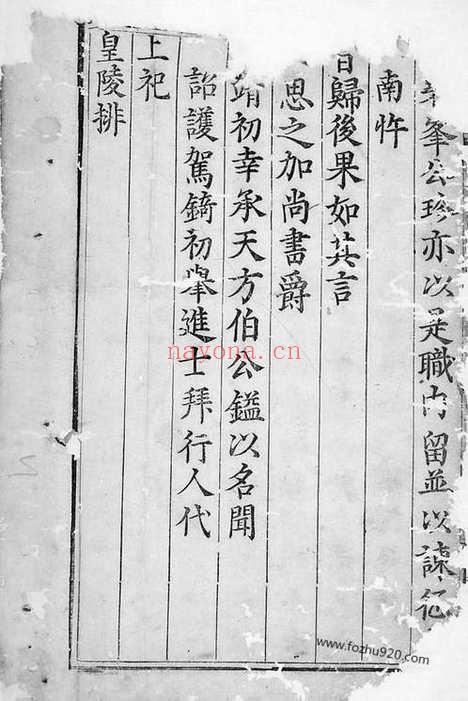 峯公珍亦以是職内留並以諌
南忤
歸後果如其言
思之加尚書爵
靖初幸承天方伯公鎰以名聞
詔護駕錡初舉進士拜行人代
上祀
皇陵排
nayona.cn
www.fozhu920.com